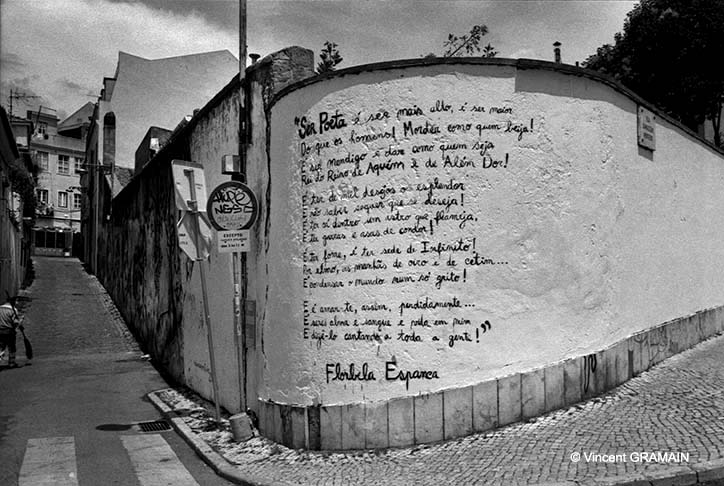 "Ser Poeta é ser mais alto, é ser maior
Do que os homens! Morder como quem beija!
É ser mendigo e dar como quem seja
Rei do Reino de Aquém e de Além Dor!
É ter de mil desejos o esplendor
E não saber sequer que se deseja!
É ter cá dentro um astro que flameja,
É ter garras e asas de condor!
É ter fome, é ter sede de Infinito!
Por elmo, as manhãs de oiro e de cetim...
É condensar o mundo num só grito!
E é amar-te, assim, perdidamente...
É seres alma e sangue e vida em mim
E dizê-lo cantando a toda a gente!"
Florbela Espanca
EXCEPTO
© Vincent GRAMAIN